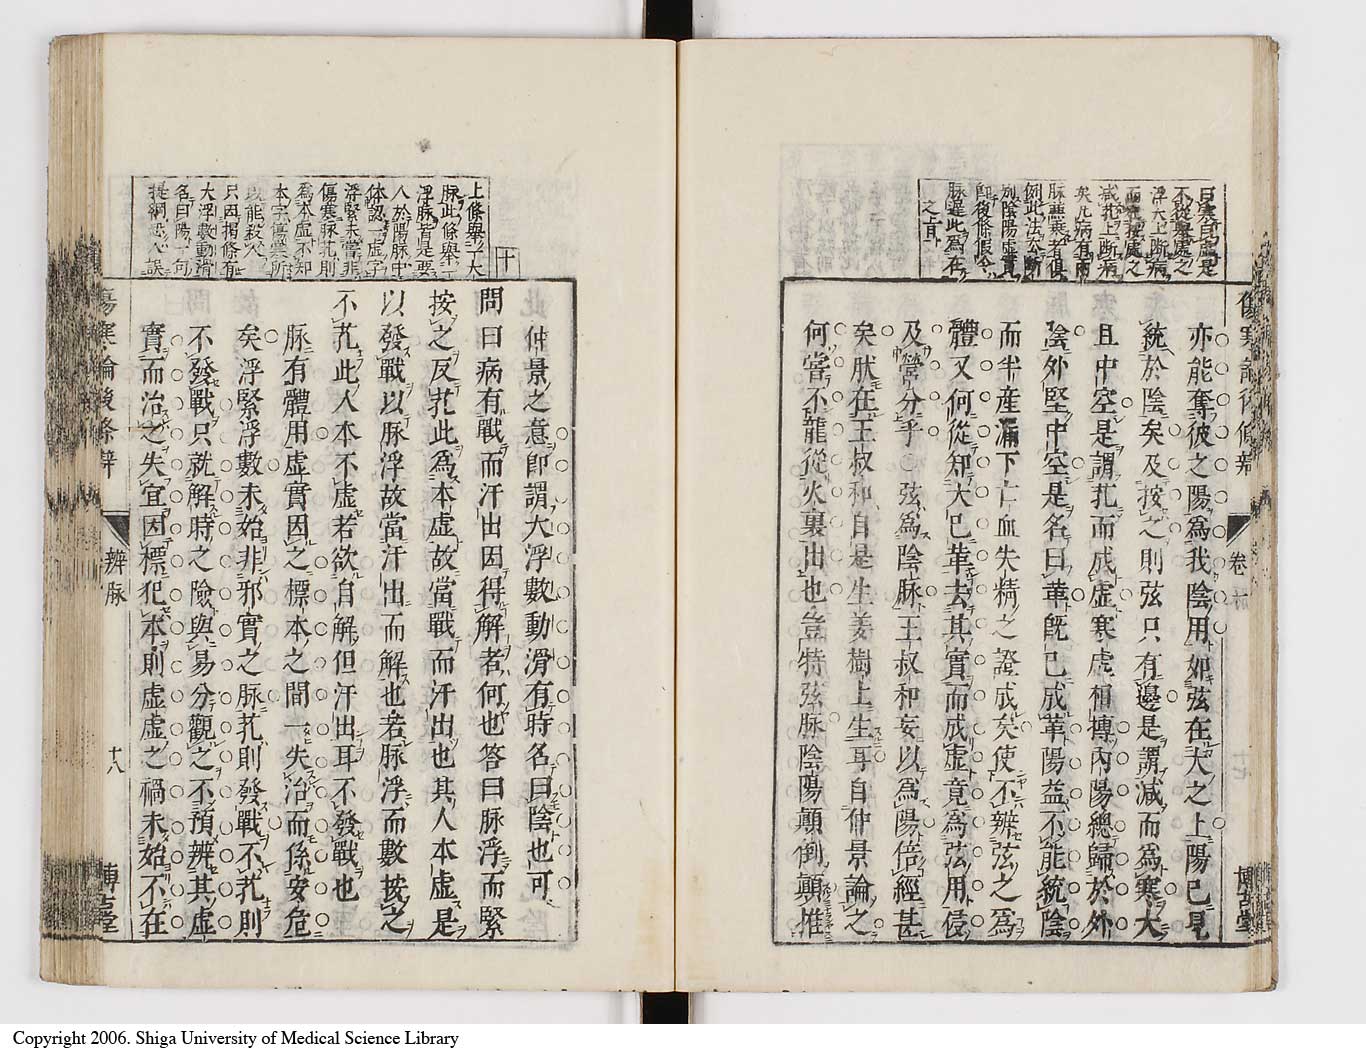 亦能奪彼之陽為我陰用如弦在大之上陽已見
統於陰矣及按之則弦只有邊是謂減而為寒大
且中空是謂芤而成虛寒虛相摶內陽總歸於外
陰外堅中空是名曰革既已成革陽益不能統陰
而半產漏下亡血失精之證成矣使不辨弦之為
體又何從知大已革去其實而成虛竟為弦用侵
及營分乎弦為陰脉王叔和妄以為陽倍經甚
矣肰在王叔和自是生姜樹上生耳自仲景論之
何嘗不龍從火裏出也豈特弦脉陰陽顛倒顛推
之旨
脉遲此為在
即後條假令
別陰陽虛實
例此法公斷
脉雖寒者俱
矣凡病有兩
減芤上斷病
而在按處之
浮大上斷病
不從舉處之
卷一
博古堂
十
上條舉一大
脉此條舉一
浮脉皆是要
人於陽脉中
体認一虛字
浮緊未嘗非
傷寒脉芤則
為本虛不知
本字傷寒所
以能殺人
只因揭條有
大浮數動滑
名曰陽一句
提綱惑人誤
仲景之意即謂大浮數動滑有時名曰陰也可
問曰病有戰而汗出因得解者何也答曰脉浮而緊
按之反芤此為本虛故當戰而汗出也其人本虛是
以發戰以脉浮故當汗出而解也若脉浮而數按之
不芤此人本不虛若欲自解但汗出耳不發戰也
脉有體用虛實因之標本之間一失治而係安危
矣浮緊浮數未始非邪實之脉芤則發戰不芤則
不發戰只就解時之險與易分觀之不預辨其虛
實而治之失宜因標犯本則虛虛之禍未始不在
傷寒論後條辨
辨脉
十八
博古堂
Copyright 2006. Shiga University of Medical Science Library